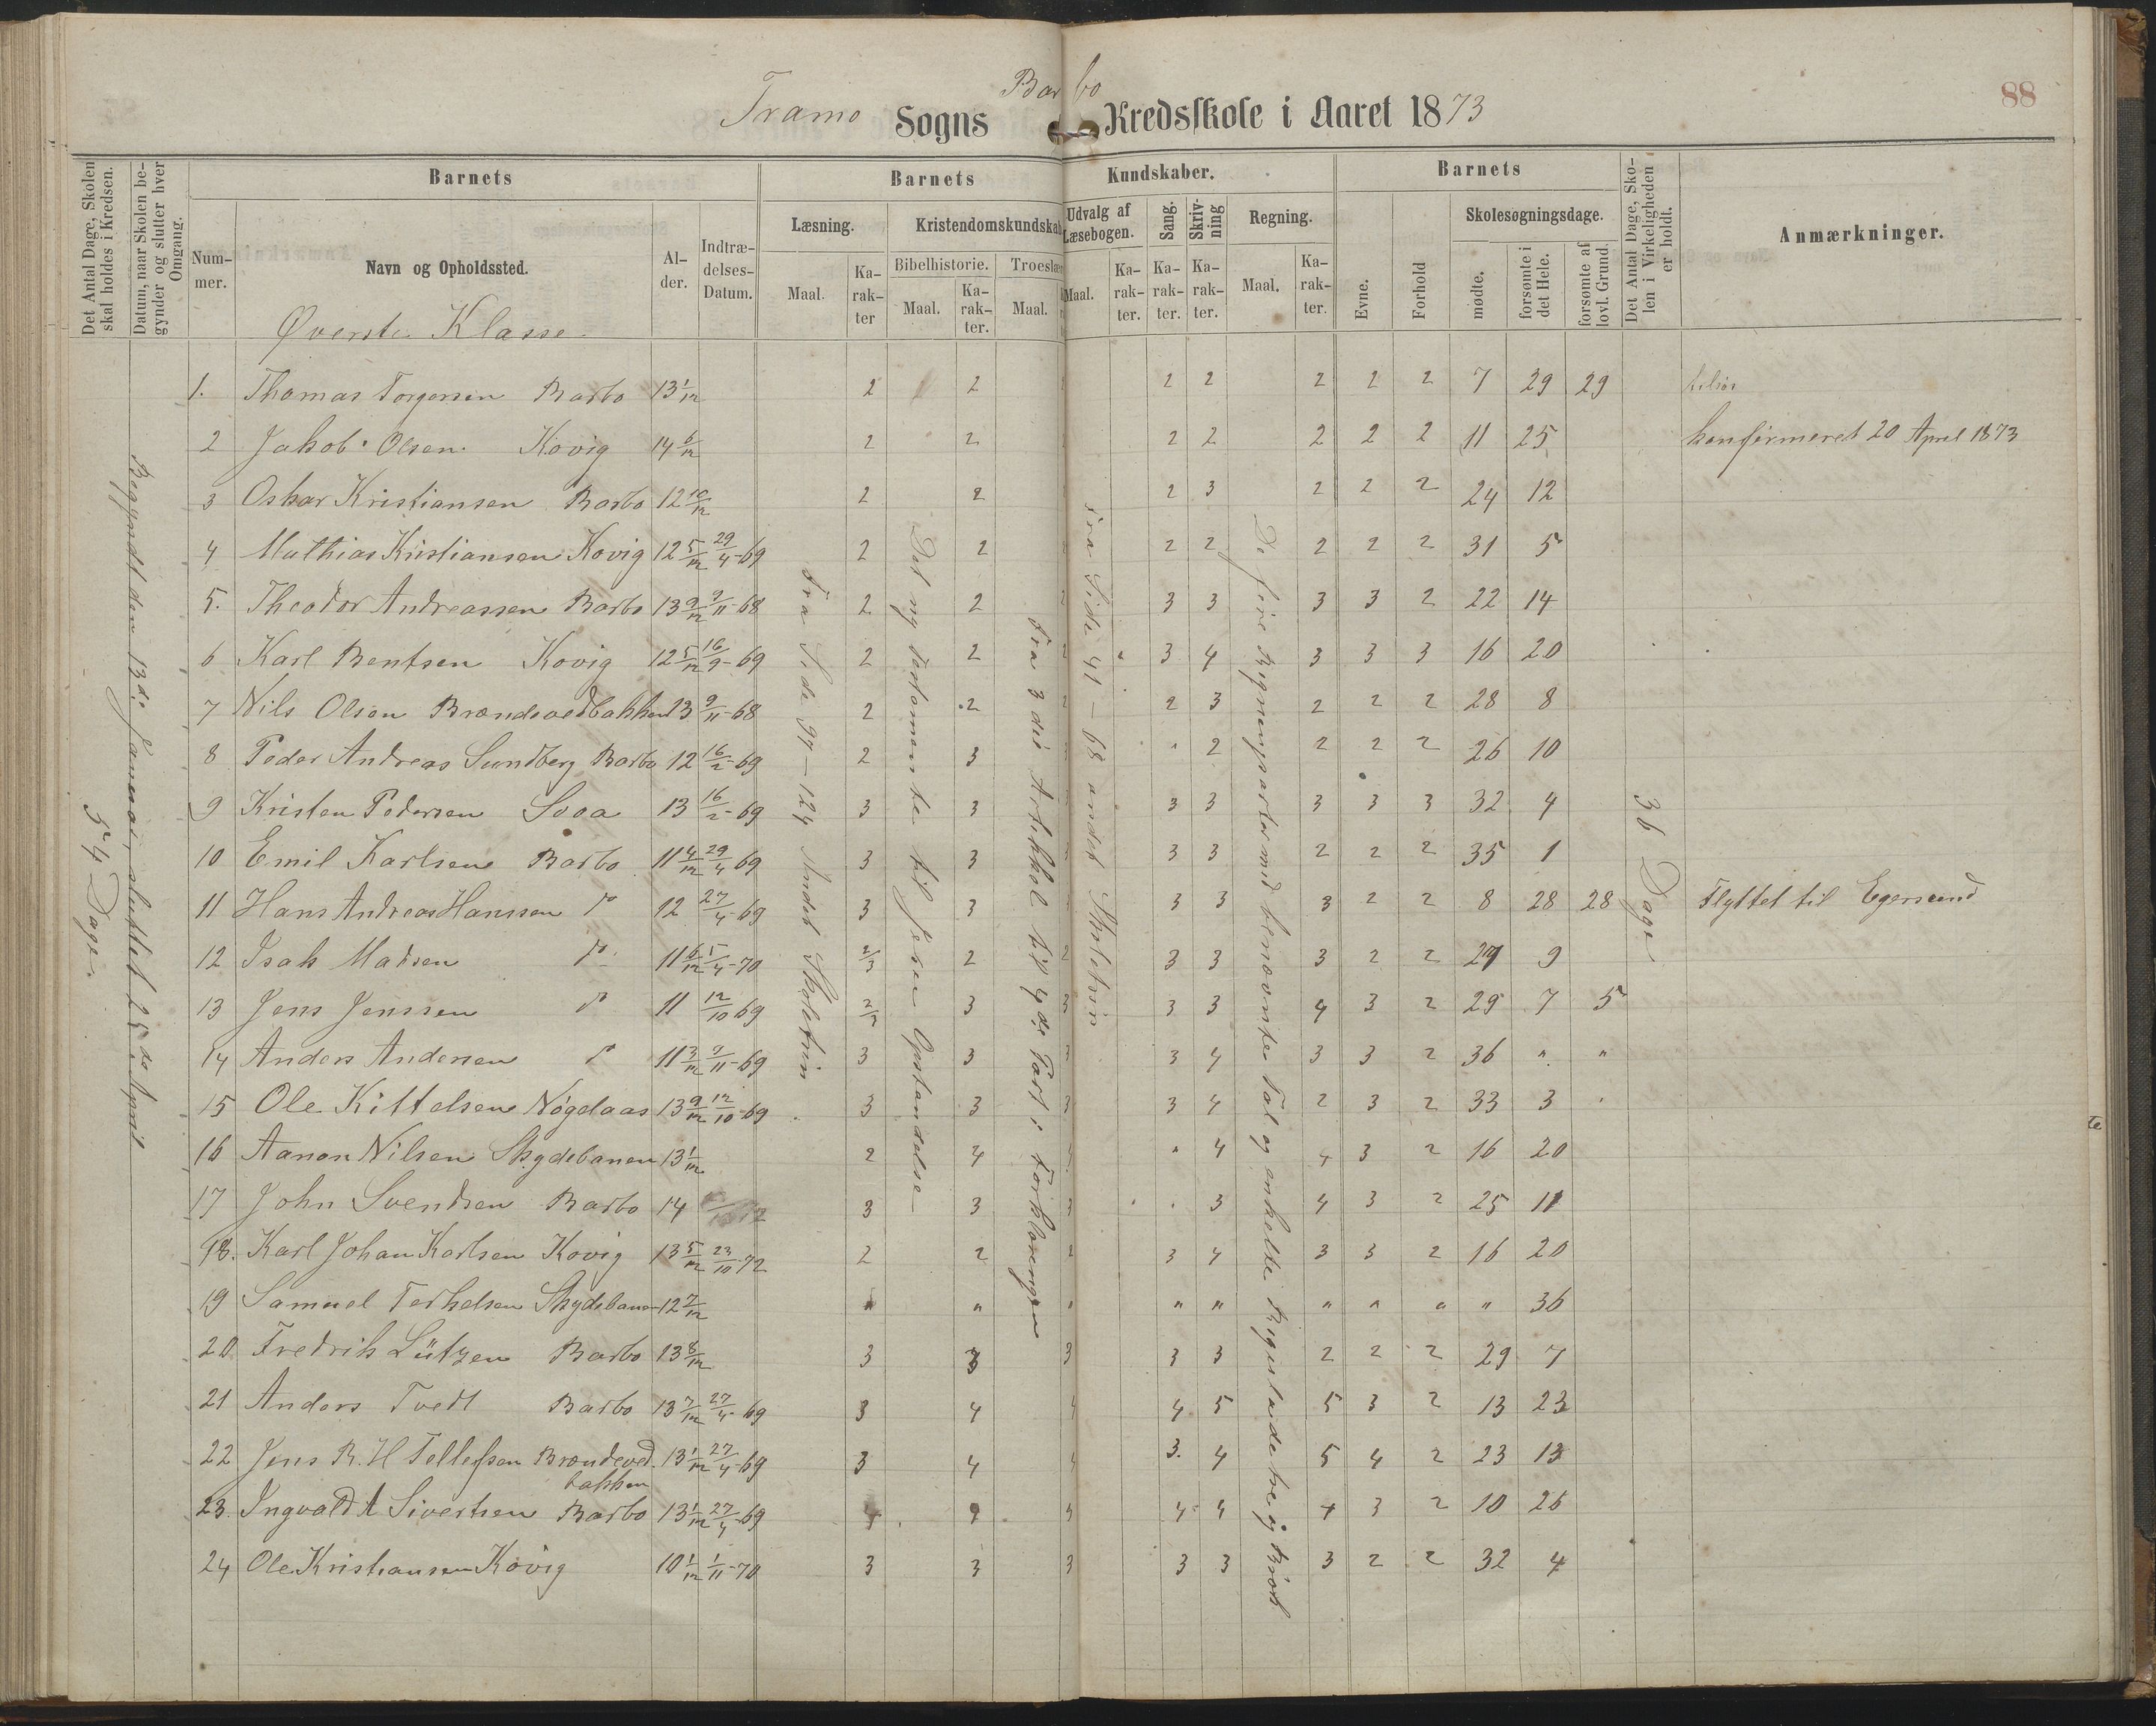 88
Tramo Sogns Barbo Kredsskole i Aaret 1873
Det Antal Dage, Skolen skal holdes i Kredsen.
Datum, naar Skolen begynder og slutter hver Omgang.
Barnets
Nummer.
Navn og Opholdssted.
Alder.
Indtrædelses-Datum.
Barnets Kundskaber.
Læsning.
Maal.
Karakter
Kristendomskundskab
Bibelhistorie.
Maal.
Karakter.
Troeslære
Maal.
Udvalg af Læsebogen.
Maal.
Karakter.
Sang.
Karakter.
Skrivning
Karakter.
Regning.
Maal.
Karakter.
Barnets
Evne.
Forhold
Skolesøgningsdage.
mødte.
forsømte i det Hele.
forsømte af lovl. Grund.
Det Antal Dage, Skolen i Virkeligheden er holdt.
Anmærkninger.
Øverste Klasse
54 Dage.
Begyndt den 13de Januar, sluttet 25de April
Fra Side 97 - 124 Andet Skoletrin
Det ny Testamente til Jesu Opstandelse
Fra 3die Artikkel til 4de Part i Forklaringen
Fra Side 41 - 68 andet Skoletrin
De fire Regningsarter med benævnte Tal og enkelte
36 Dage
1. Thomas Torgersen Barbo 13 1/12 2 2 2 2 2 2 2 7 29 29
2 Jakob Olsen Kovig 14 6/12 2 2 2 2 2 2 2 11 25 konfirmeret 20 April 1873
3 Oskar Kristiansen Barbo 12 10/12 2 2 2 3 2 2 2 24 12
4 Mathias Kristiansen Kovig 12 5/12 29/4-69 2 2 2 2 2 2 2 2 31 5
5. Theodor Andreassen Barbo 13 9/12 9/11-68 2 2 2 3 3 3 3 2 22 14
6 Karl Bentsen Kovig 12 5/12 16/9-69 2 2 2 3 4 3 3 3 16 20
7 Nils Olsen Brændevedbakken 13 9/11-68 2 2 2 2 3 2 2 2 28 8
8 Peder Andreas Sundberg Barbo 12 16/2-69 2 3 3 " 2 2 2 2 26 10
9 Kristen Pedersen Svoa 13 16/2-69 3 3 3 3 3 3 3 3 32 4
10 Emil Karlsen Barbo 11 4/12 29/4 69 3 3 3 3 3 2 2 2 35 1
11 Hans Andreas Hanssen do 12 27/4-69 3 3 3 3 3 2 2 8 28 28 Flyttet til Egersund
12 Isak Madsen do 11 6/12 5/4-70 2/3 2 2 3 3 3 2 2 27 9
13 Jens Jenssen do 11 12/10 69 2/3 3 3 3 3 4 3 2 29 7 5
14 Anders Andersen do 11 3/12 9/11-69 3 3 3 3 4 3 3 2 36 " "
15 Ole Kittelsen Nøgelaas 13 9/12 12/10-69 3 3 3 3 4 2 3 2 33 3
16 Aanon Nilsen Skydebanen 13 1/12 2 4 4 " 4 4 3 2 16 20
17 John Svendsen Barbo 14 3 3 3 3 4 3 2 25 11
18. Karl Johan Karlsen Kovig 13 5/12 23/10-72 2 2 2 3 4 3 3 2 16 20
19 Samuel Terkelsen Skydebanen 12 7/12 " " " " " " " " " 36
20 Fredrik Lützen Barbo 13 8/12 3 3 3 3 3 2 2 2 29 7
21 Anders Tvedt Barbo 13 7/12 27/4-69 3 4 4 4 5 5 3 2 13 23
22 Jens R. H Tellefsen Brændevedbakken 13 1/12 27/4-69 3 4 4 3. 4 5 4 2 23 13
23. Ingvald A Sivertsen Barbo 13 1/12 27/4-69 4 4 4 4 4 3 2 10 26
24 Ole Kristiansen Kovig 10 1/12 1/11-70 3 3 3 3 3 3 2 2 32 4